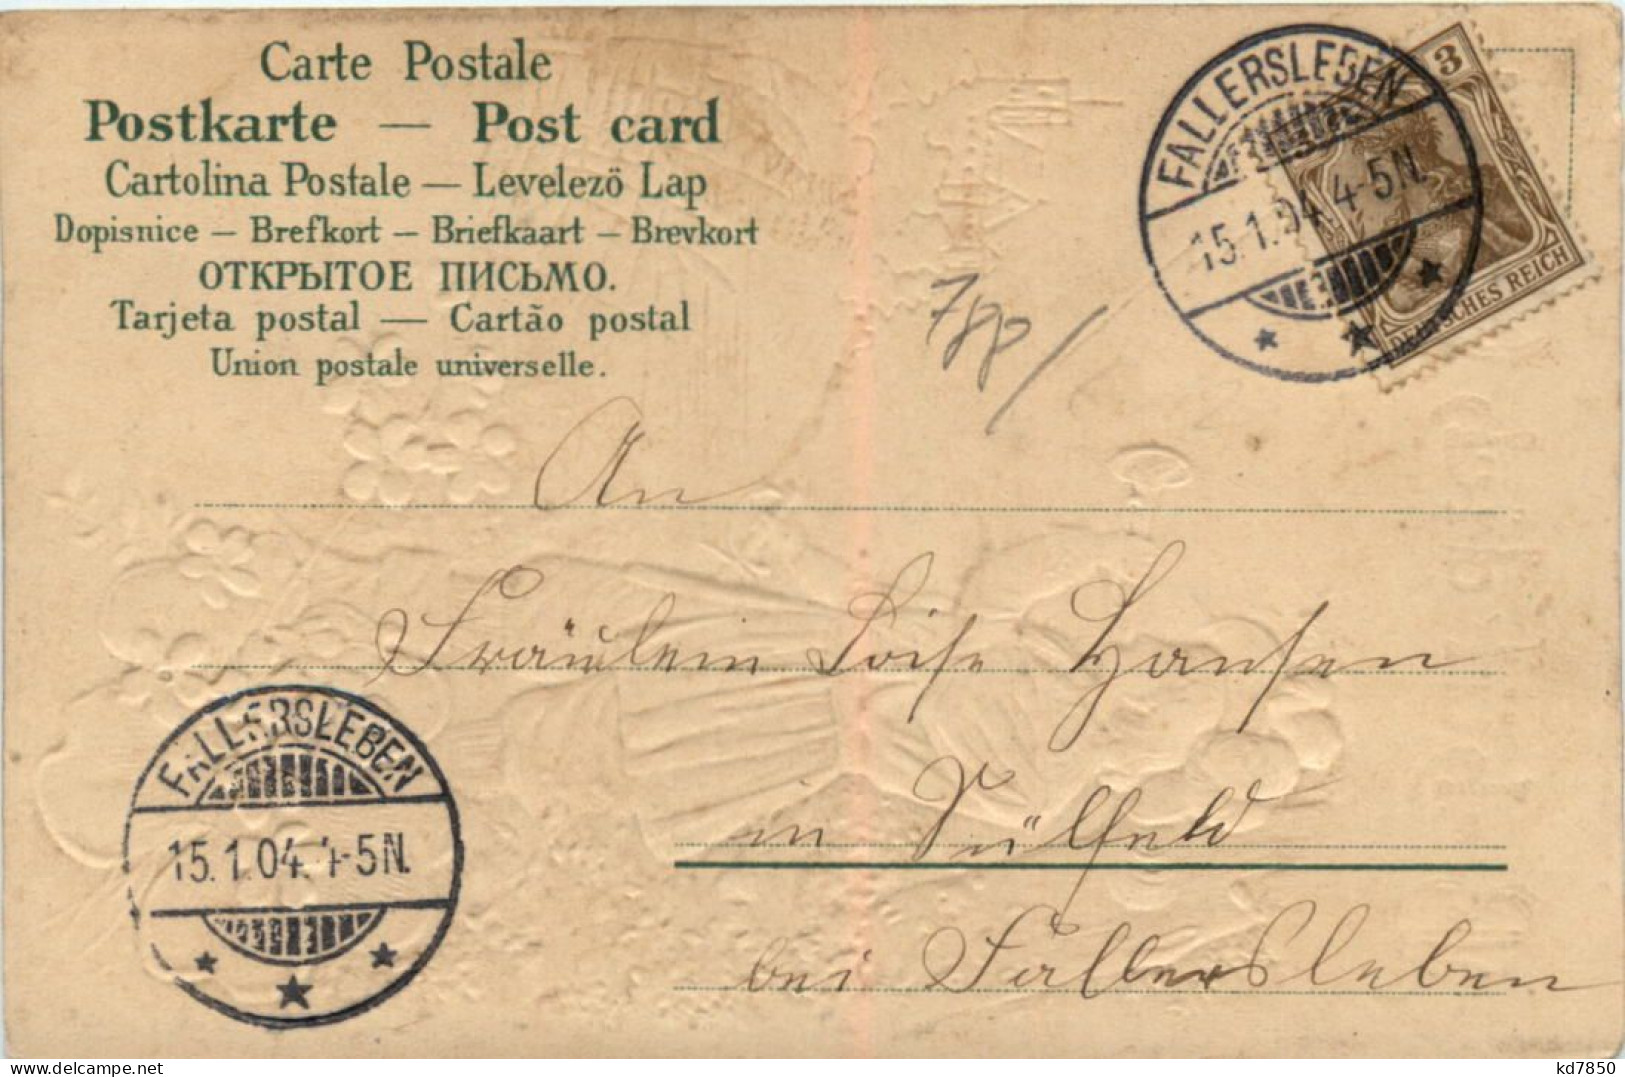 Carte Postale
Postkarte — Post card
Cartolina Postale — Levelező Lap
Dopisnice — Brefkort — Briefkaart — Brevkort
ОТКРЫТОЕ ПИСЬМО.
Tarjeta postal — Cartão postal
Union postale universelle.
FALLERSLEBEN
15.1.04. 4-5N.
3
DEUTSCHES REICH
An
Fräulein Loise Hansen
in Sülfeld
bei Fallersleben
FALLERSLEBEN
15.1.04. 4-5N.
delcampe.net
kd7850